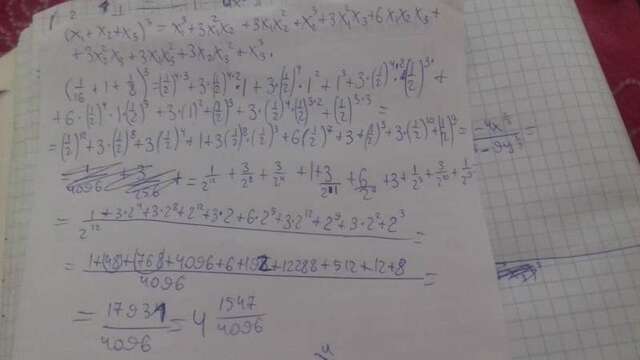 (x₁+x₂+x₃)³ = x₁³+3x₁²x₂ + 3x₁x₂² + x₂³ + 3x₁²x₃+6x₁x₂x₃+
+3x₂²x₃+3x₁x₃²+3x₂x₃²+x₃³.
(1/16 + 1 + 1/8)³ = (1/2)^(4·3) + 3·(1/2)^(4·2)·1 + 3·(1/2)⁴·1² + 1³ + 3·(1/2)^(4·2)·(1/2)³ +
+6·(1/2)⁴·1·(1/2)³ + 3·(1)²·(1/2)³ + 3·(1/2)⁴·(1/2)^(3·2) + (1/2)^(3·3) =
=(1/2)¹²+3·(1/2)⁸+3(1/2)⁴+1+3(1/2)⁸·(1/2)³+6(1/2)⁷+3·(1/2)³+3·(1/2)¹⁰+(1/2)⁹ =
= 1/2¹² + 3/2⁸ + 3/2⁴ + 1 + 3/2¹¹ + 6/2⁷ + 3 + 1/2³ + 3/2¹⁰ + 1/2⁹
= (1+3·2⁴+3·2⁸+2¹²+3·2+6·2⁵+3·2¹²+2⁹+3·2²+2³)/2¹² =
= (1+48+768+4096+6+192+12288+512+12+8)/4096 =
= 17931/4096 = 4 1547/4096